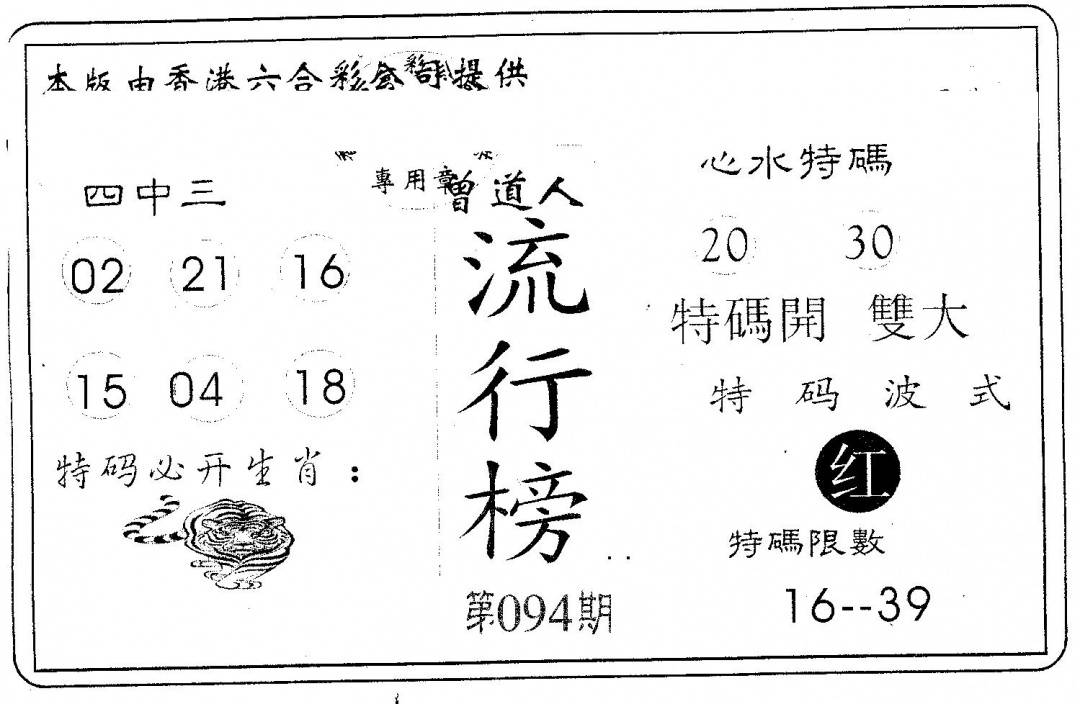 本版由香港六合彩公司提供
專用章
曾道人
流行榜
第094期
四中三
02 21 16
15 04 18
特码必开生肖：
心水特碼
20 30
特碼開 雙大
特码波式
红
特碼限數
16--39